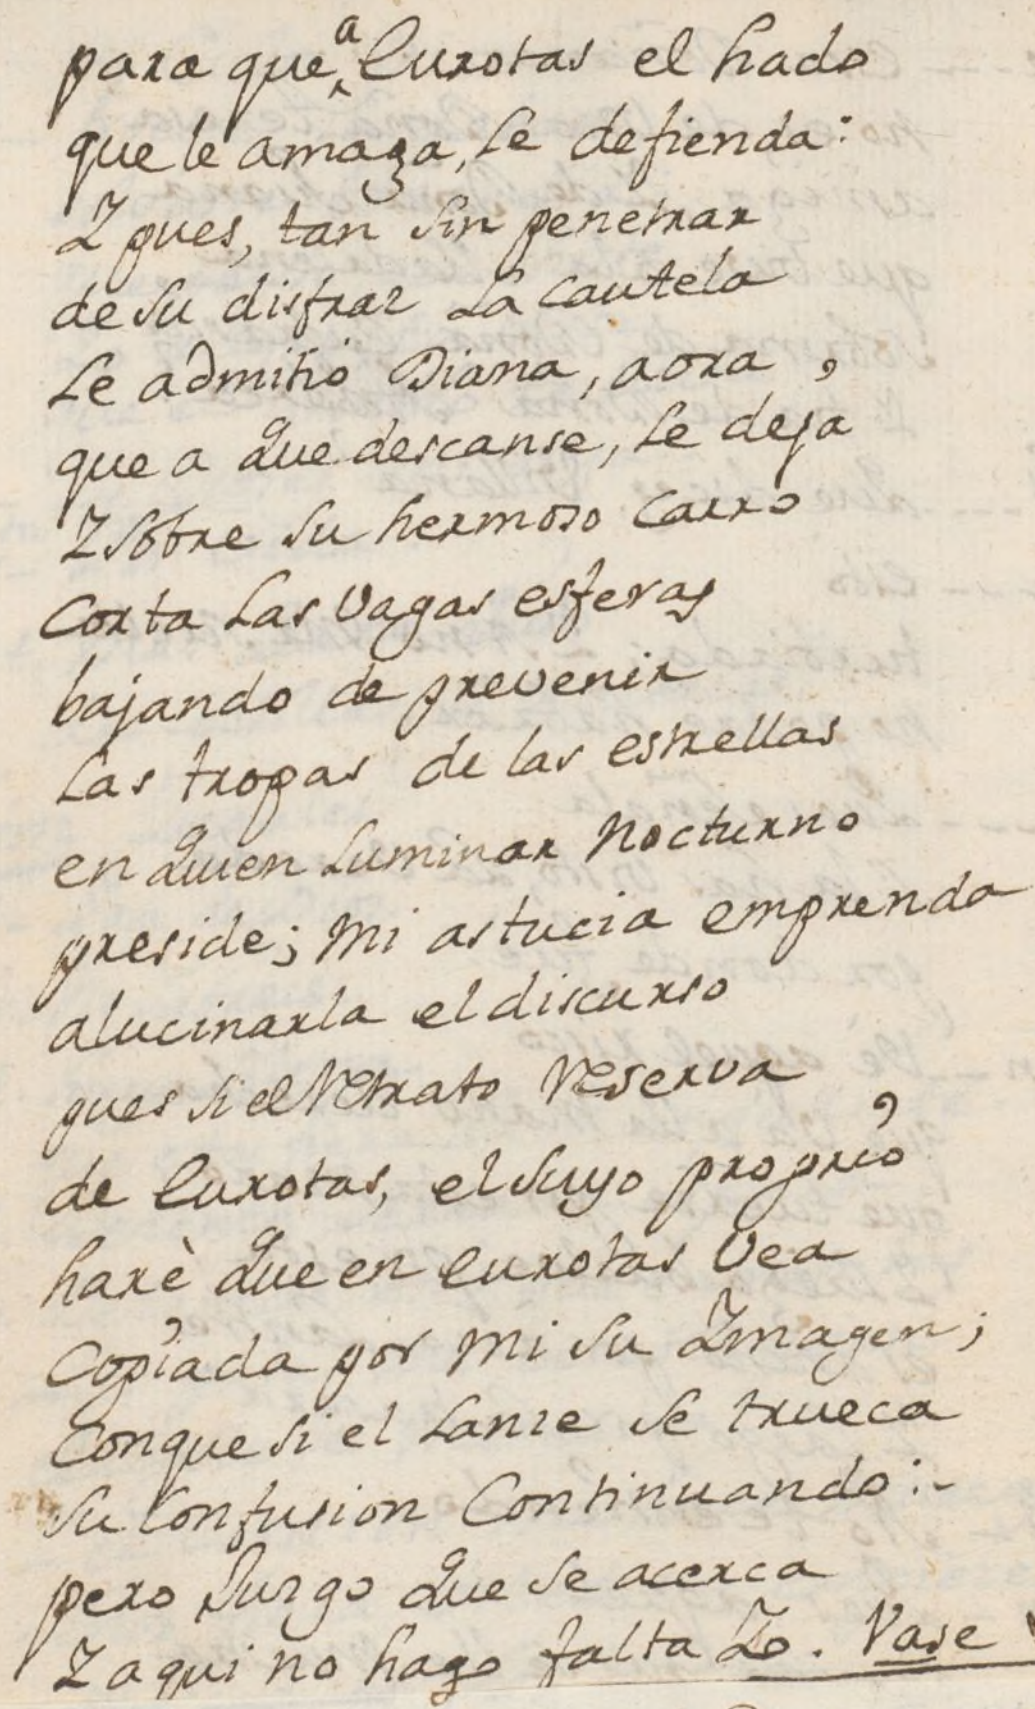 para que a Eurotas el hado
que le amaga, le defienda:
Y pues, tan sin penetrar
de su disfraz la cautela
le admitió Diana, aora,
que a que descanse, le deja
Y sobre su hermoso carro
Corta las vagas esferas
bajando de prevenir
las tropas de las estrellas
en quien luminar nocturno
preside; mi astucia emprenda
alucinarla el discurso
pues si el retrato reserva
de Eurotas, el suyo proprio
harè que en Eurotas vea
Copiada por mi su Ymagen;
Conque si el lanze se trueca
su confusion Continuando:-
pero Juzgo que se acerca
Y aqui no hago falta Yo. Vase